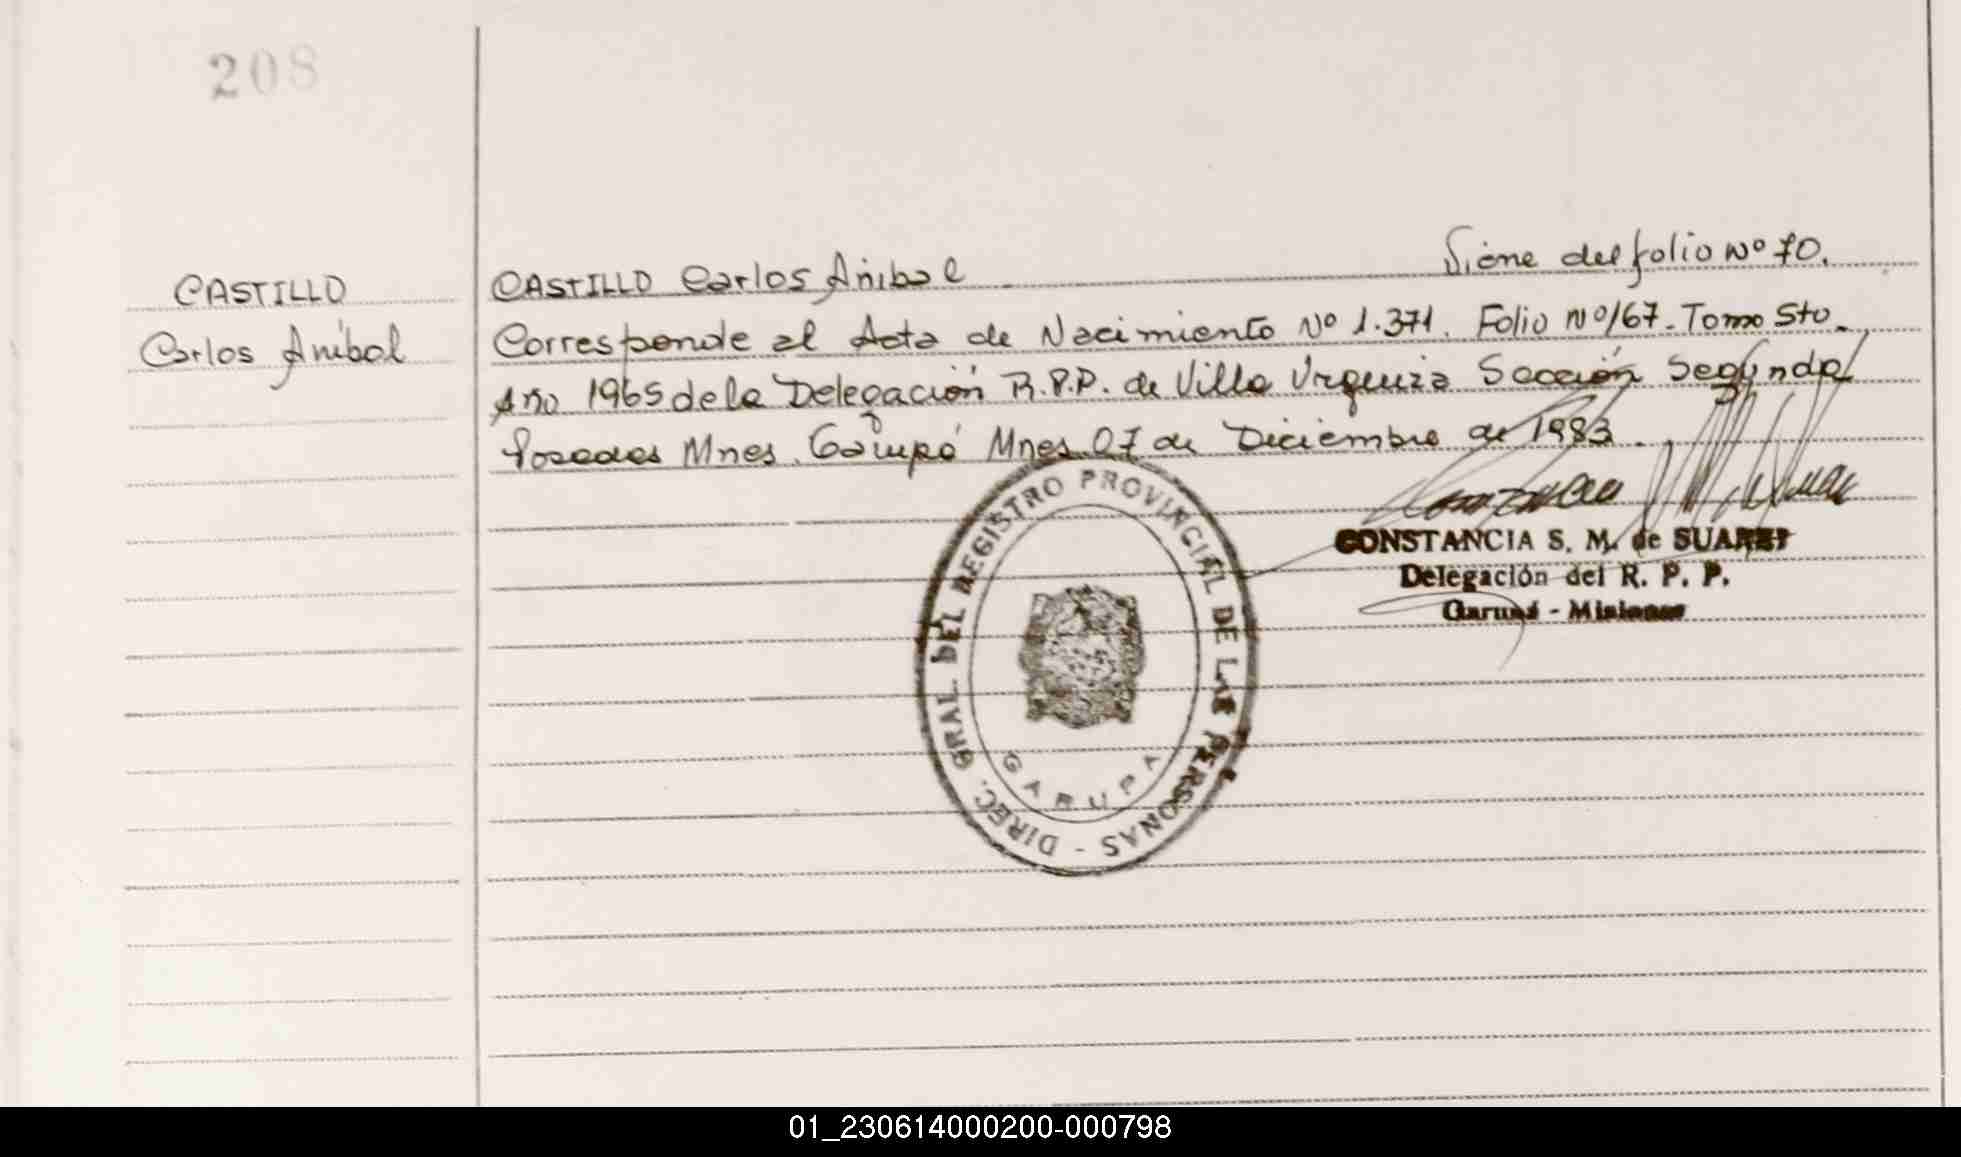 208
CASTILLO
Carlos Aníbal
Viene del folio Nº 70.
CASTILLO Carlos Aníbal
Corresponde al Acta de Nacimiento Nº 1.371. Folio Nº 167. Tomo 5to.
Año 1965 de la Delegación R.P.P. de Villa Urquiza Sección Segunda
Posadas Mnes. Garupá Mnes. 07 de Diciembre de 1983.
CONSTANCIA S. M. de SUAREZ
Delegación del R. P. P.
Garupá - Misiones
DIREC. GRAL. DEL REGISTRO PROVINCIAL DE LAS PERSONAS -
GARUPA
01_230614000200-000798